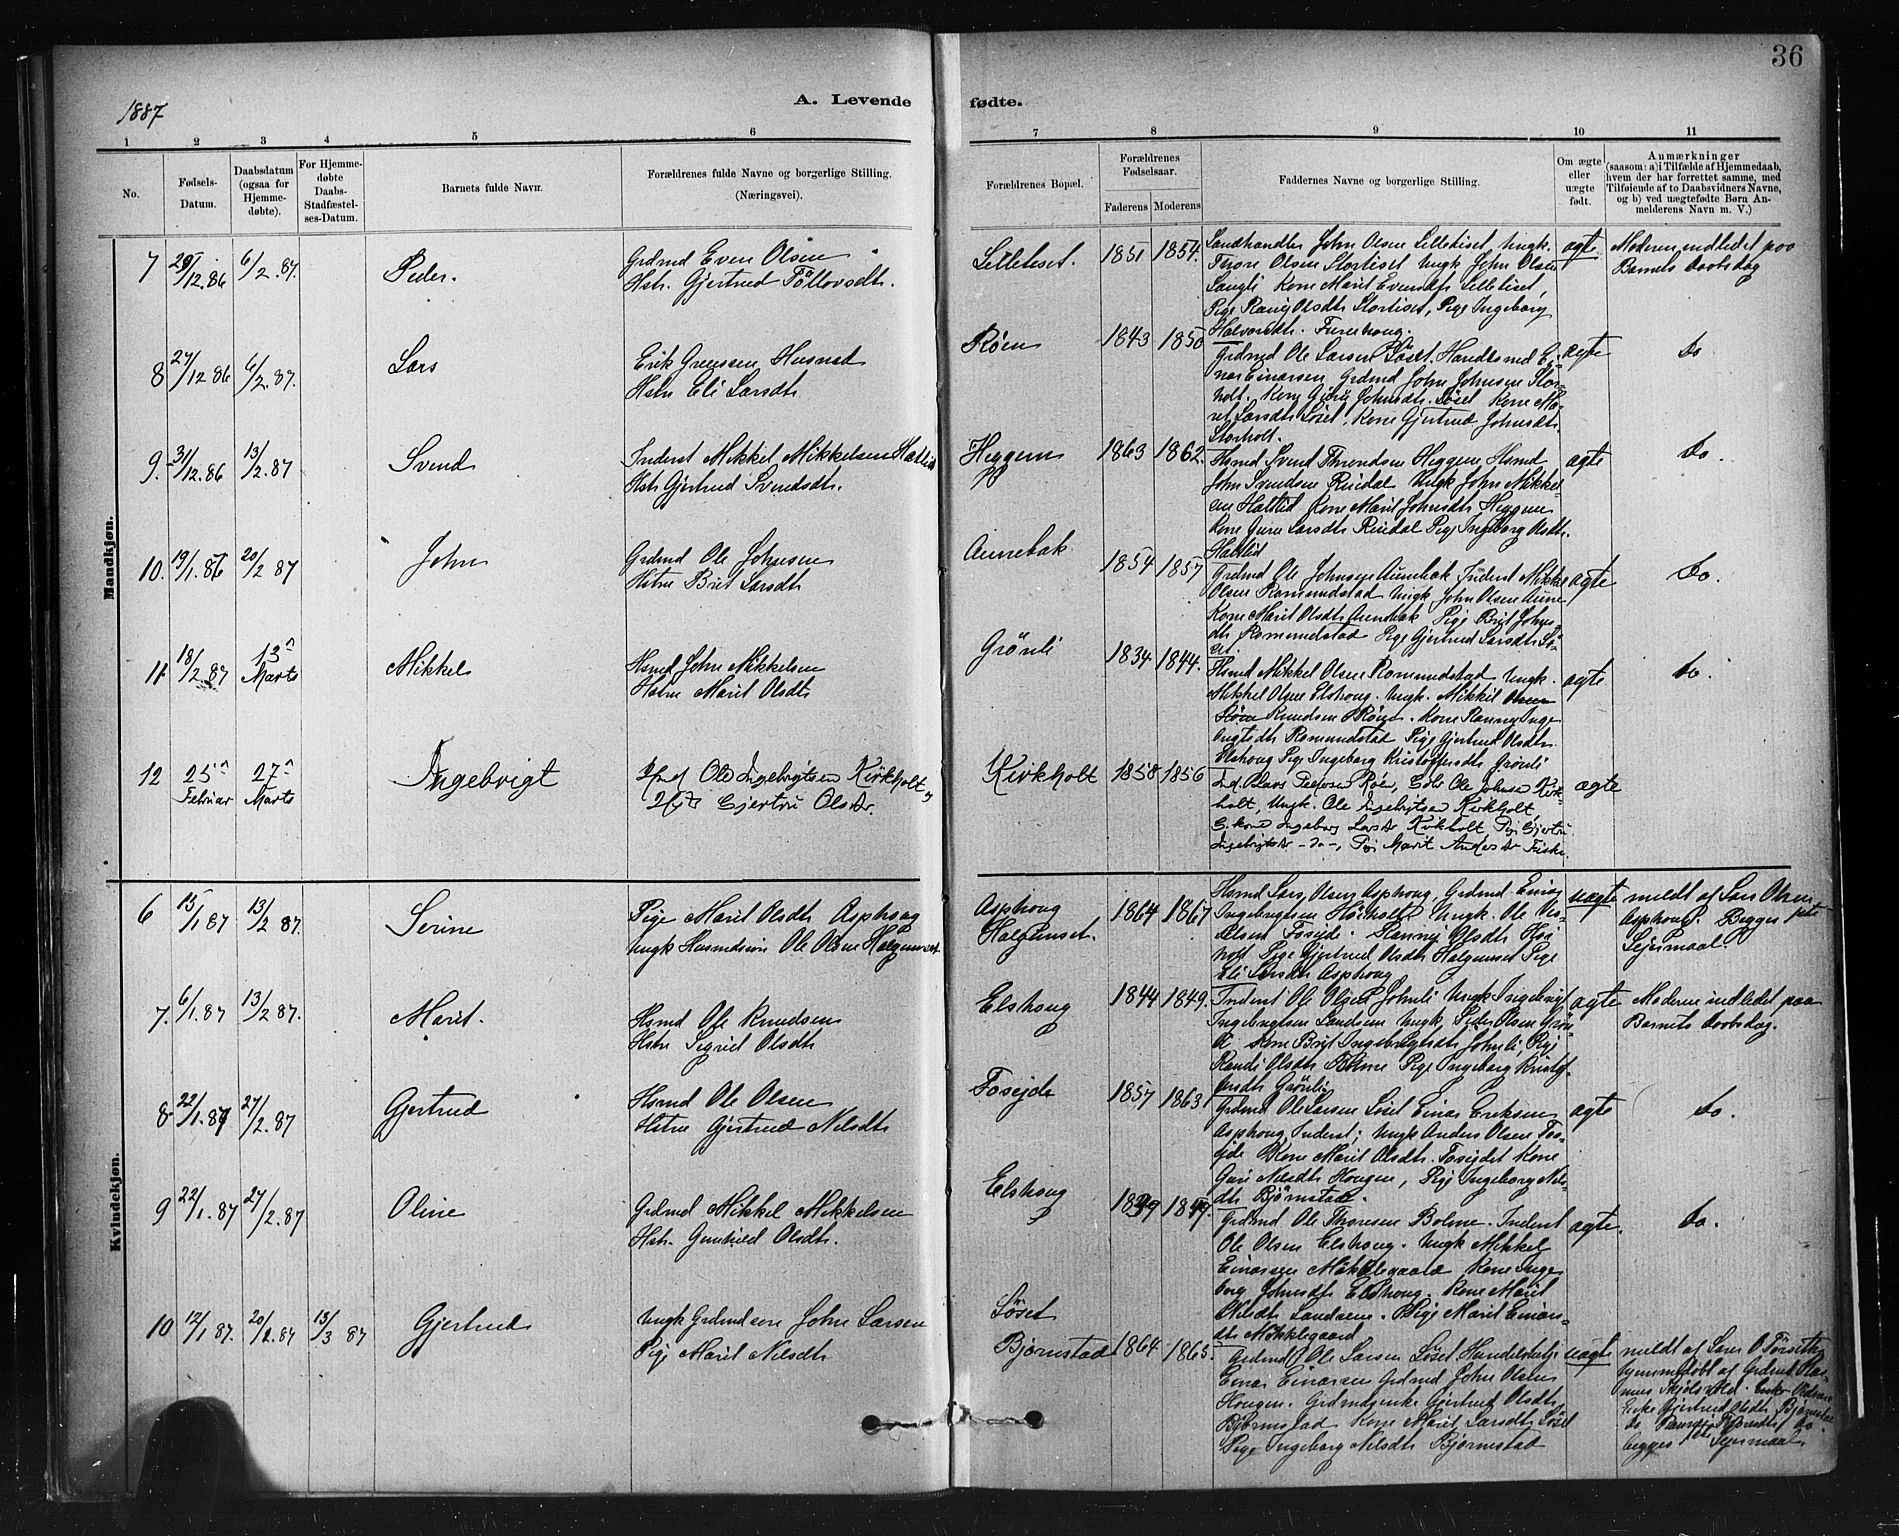 36
1887
A. Levende fødte.
1 2 3 4 5 6 7 8 9 10 11
No.
Fødsels-Datum.
Daabsdatum (ogsaa for Hjemme-døbte).
For Hjemme-døbte Daabs-Stadfæstel-ses-Datum.
Barnets fulde Navn.
Forældrenes fulde Navne og borgerlige Stilling.
(Næringsvei).
Forældrenes Bopæl.
Forældrenes Fødselsaar.
Faderens Moderens
Faddernes Navne og borgerlige Stilling.
Om ægte eller uægte født.
Anmærkninger
(saasom: a) i Tilfælde af Hjemmedaab, hvem der har forrettet samme, med Tilføiende af to Daabsvidners Navne, og b) ved uægtefødte Børn An-melderens Navn m. V.)
Mandkjøn.
7 29/12.86 6/2.87. Peder. Grdmd Even Olsen
Hstr. Gjertrud Töllovsdtr.
Lilletiset. 1851 1854.
Landhandler John Olsen Lilletiset, Ungk.
Thore Olsen Stortiset Ungk John Olsen
Kone Marit Evensdtr Lilletiset,
Pige Ranij Olsdtr Stortiset, Pige Ingeborg
Halvorsdtr.
ægte. Moderen indledet paa
Barnets Daabsdag
8 27/12 86 6/2.87. Lars Erik Husmd
Hstru Eli Larsdtr
Røen 1843 1850
Grdmd Ole Larsen Löset. Handlsmd Ei-
nar Einarsen Grdmd John Johnsen Stor-
holt. Kone Guru Johnsdtr. Löset Kone Ma-
rit Larsdtr Löset, Kone Gjertrud Johnsdtr.
Storholt.
ægte do
9. 31/12.86 13/2.87 Svend Inderst Mikkel Mikkelsen Halslid
Hstr. Gjertrud Svendsdtr.
Heggem 1863 1862.
Husmd Svend Throndsen Heggem Husmd
John Svendsen Rindal Ungk John Mikkel-
sen Halslid Kone Marit Johnsdtr Heggem
Kone Guru Larsdtr Rindal Pige Ingeborg Olsdtr.
Halslid
ægte do.
10. 19/1.86 20/2 87 John Grdmd Ole Johnsen
Hstru Brit Larsdtr
Aunebak 1854 1857
Grdmd Ole Johnsen Aunebak Inderst Mikkel
Olsen Romundstad Ungk John Olsen Aune
Kone Marit Olsdtr Aunebak Pige Brit Johns-
dtr Romundstad Pige Gjertrud Larsdtr Lö-
set.
ægte do.
11. 18/2 87 13de Marts Mikkel Husmd John Mikkelsen
Hstru Marit Olsdtr
Grönli 1834 1844.
Husmd Mikkel Olsen Romundstad Ungk.
Mikkel Olsen Elshoug. Ungk. Mikkel
Knudsen Röen. Kone Ranney Inge
brigtsdtr Romundstad Pige Gjertrud Olsdtr
Elshoug Pige Ingeborg Kristoffersdtr Grönli
ægte do.
12 25de Februar 27de Marts Ingebrigt Ole Ingebrigtsen Kirkholt
Gjertru Olsdtr.
Kirkholt 1858 1856
Lars Pedersen Røen, Ole Johnsen Kirk-
holt, Ungk. Ole Ingebrigtsen Kirkholt,
G. kone Ingeborg Larsdr Kirkholt Pig. Gjertru
Ingebrigtsdr -do-, Pig. Marit Andersdr Fiske.
ægte
Kvindekjøn.
6 15/1 87 13/2 87. Serine Pige Marit Olsdtr Asphoug
Ungk Husmdsøn Ole Olsen Halgunset
Asphoug
Halgunset. 1864 1867
Husmd Lars Olsen Asphoug, Grdmd Einar
Ingebrigtsen Ungk. Ole
Olsdtr
Pige Gjertrud Olsdtr Halgunset Pige
Eli Larsdtr Asphoug
uægte meldt af Lars Olsen
Asphoug. Begges
Leiermaal.
7. 6/1.87 13/2 87. Marit. Husmd Ole Knudsen
Hstru Sigrid Olsdtr
Elshoug 1844 1849.
Inderst Ole Olsen Johnli Ungk Ingebrigt
Ingebrigtsen Landsem Ungk, Peder Olsen Grön-
li Kone Brit Ingebrigtsdtr Johnli, Pige
Randi Olsdtr Bolme Pige Ingeborg Kristof-
fersdtr Grönli
ægte Moderen indledet paa
Barnets Daabsdag.
8 22/1.87 27/2.87 Gjertrud Husmd Ole Olsen
Hstru Gjertrud Nilsdtr
Foseide 1857 1863
Grdmd Ole Larsen Löset Einar Eriksen
Asphoug Inderst; Ungk Anders Olsen Fos-
eide Kone Marit Olsdtr. Foseidet Kone
Guri Nilsdtr Hougen, Pige Ingeborg Nils-
dtr Björnstad.
ægte do.
9 22/1.87 27/2.87 Oline Grdmd Mikkel Mikkelsen
Hstr. Gunhild Olsdtr.
Elshoug 1849.
Grdmd Ole Thoresen Bolme. Inderst
Ole Olsen Elshoug. Ungk Mikkel
Einarsen Mikklegaard Kone Inge
borg Johnsdtr Elshoug. Kone Marit
Nilsdtr Landsem. Pige Marit Einars-
dtr Mikklegaard
ægte. do.
10 12/1 87. 20/2.87 13/3 87 Gjertrud Ungk Grdmdssøn John Larsen
Pige Marit Nilsdtr
Löset
Bjørnstad 1864 1865.
Grdmd Ole Larsen Löset Handelsbetj
Einar Einarsen Grdmd John Olsen
Hougen. Grdmdsenke Gjertrud Olsdtr
Björnstad Kone Marit Larsdtr Löset
Pige Ingeborg Nilsdtr Bjørnstad
uægte meldt af Lars O
hjemmedøbt af Grdmd
Enke
Enke Gjertrud Olsdtr Björnstad
do
begges Leiermaal.